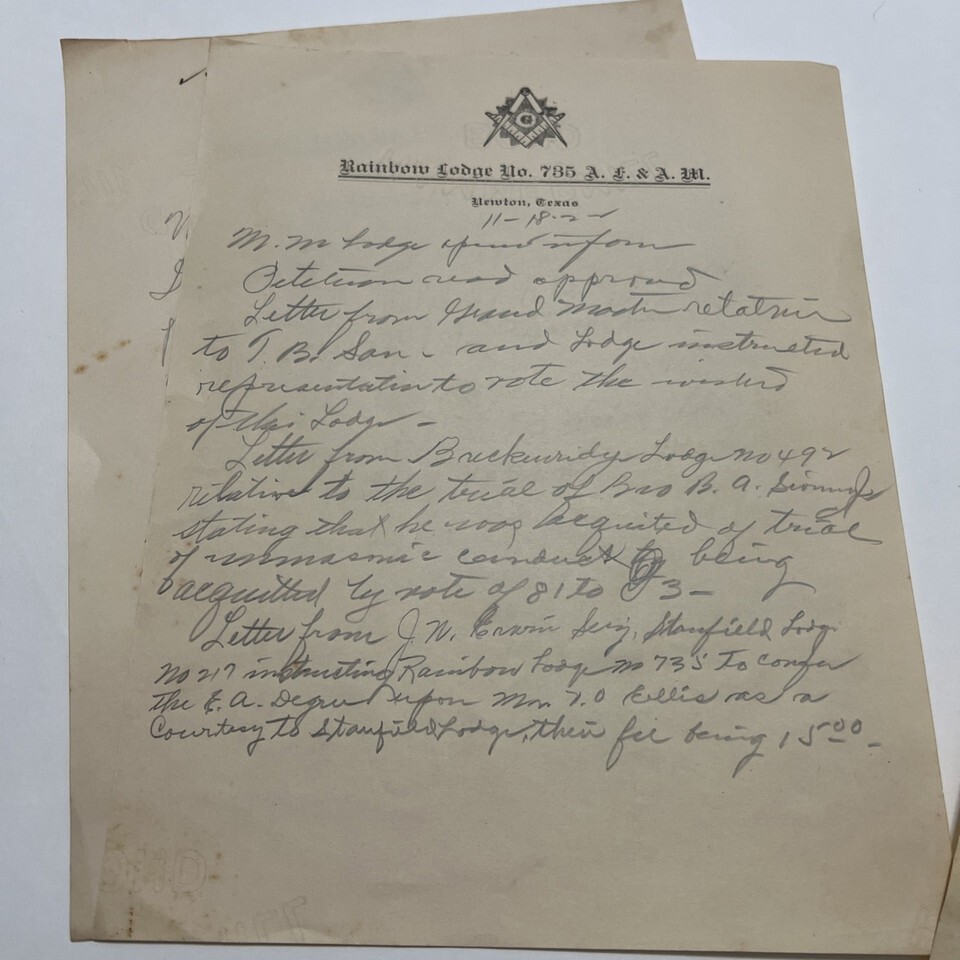 G
Rainbow Lodge No. 735 A. F. & A. M.
Newton, Texas
11-18-2
M. M Lodge opened in form
Petition read approved
Letter from Grand Master relative
to T. B. San - and Lodge instructed
representative to vote the wishes
of this Lodge -
Letter from Breckenridge Lodge no 492
relative to the trial of Bro B. A.
stating that he was acquited of trial
of unmasonic conduct being
acquitted by vote of 81 to 3 -
Letter from J. N. Erwin Secy, Stanfield Lodge
No 217 instructing Rainbow Lodge no 735 to confer
the E. A. Degree upon Mr. T. O Ellis as a
Courtesy to Stanfield Lodge, their fee being 15 00 -